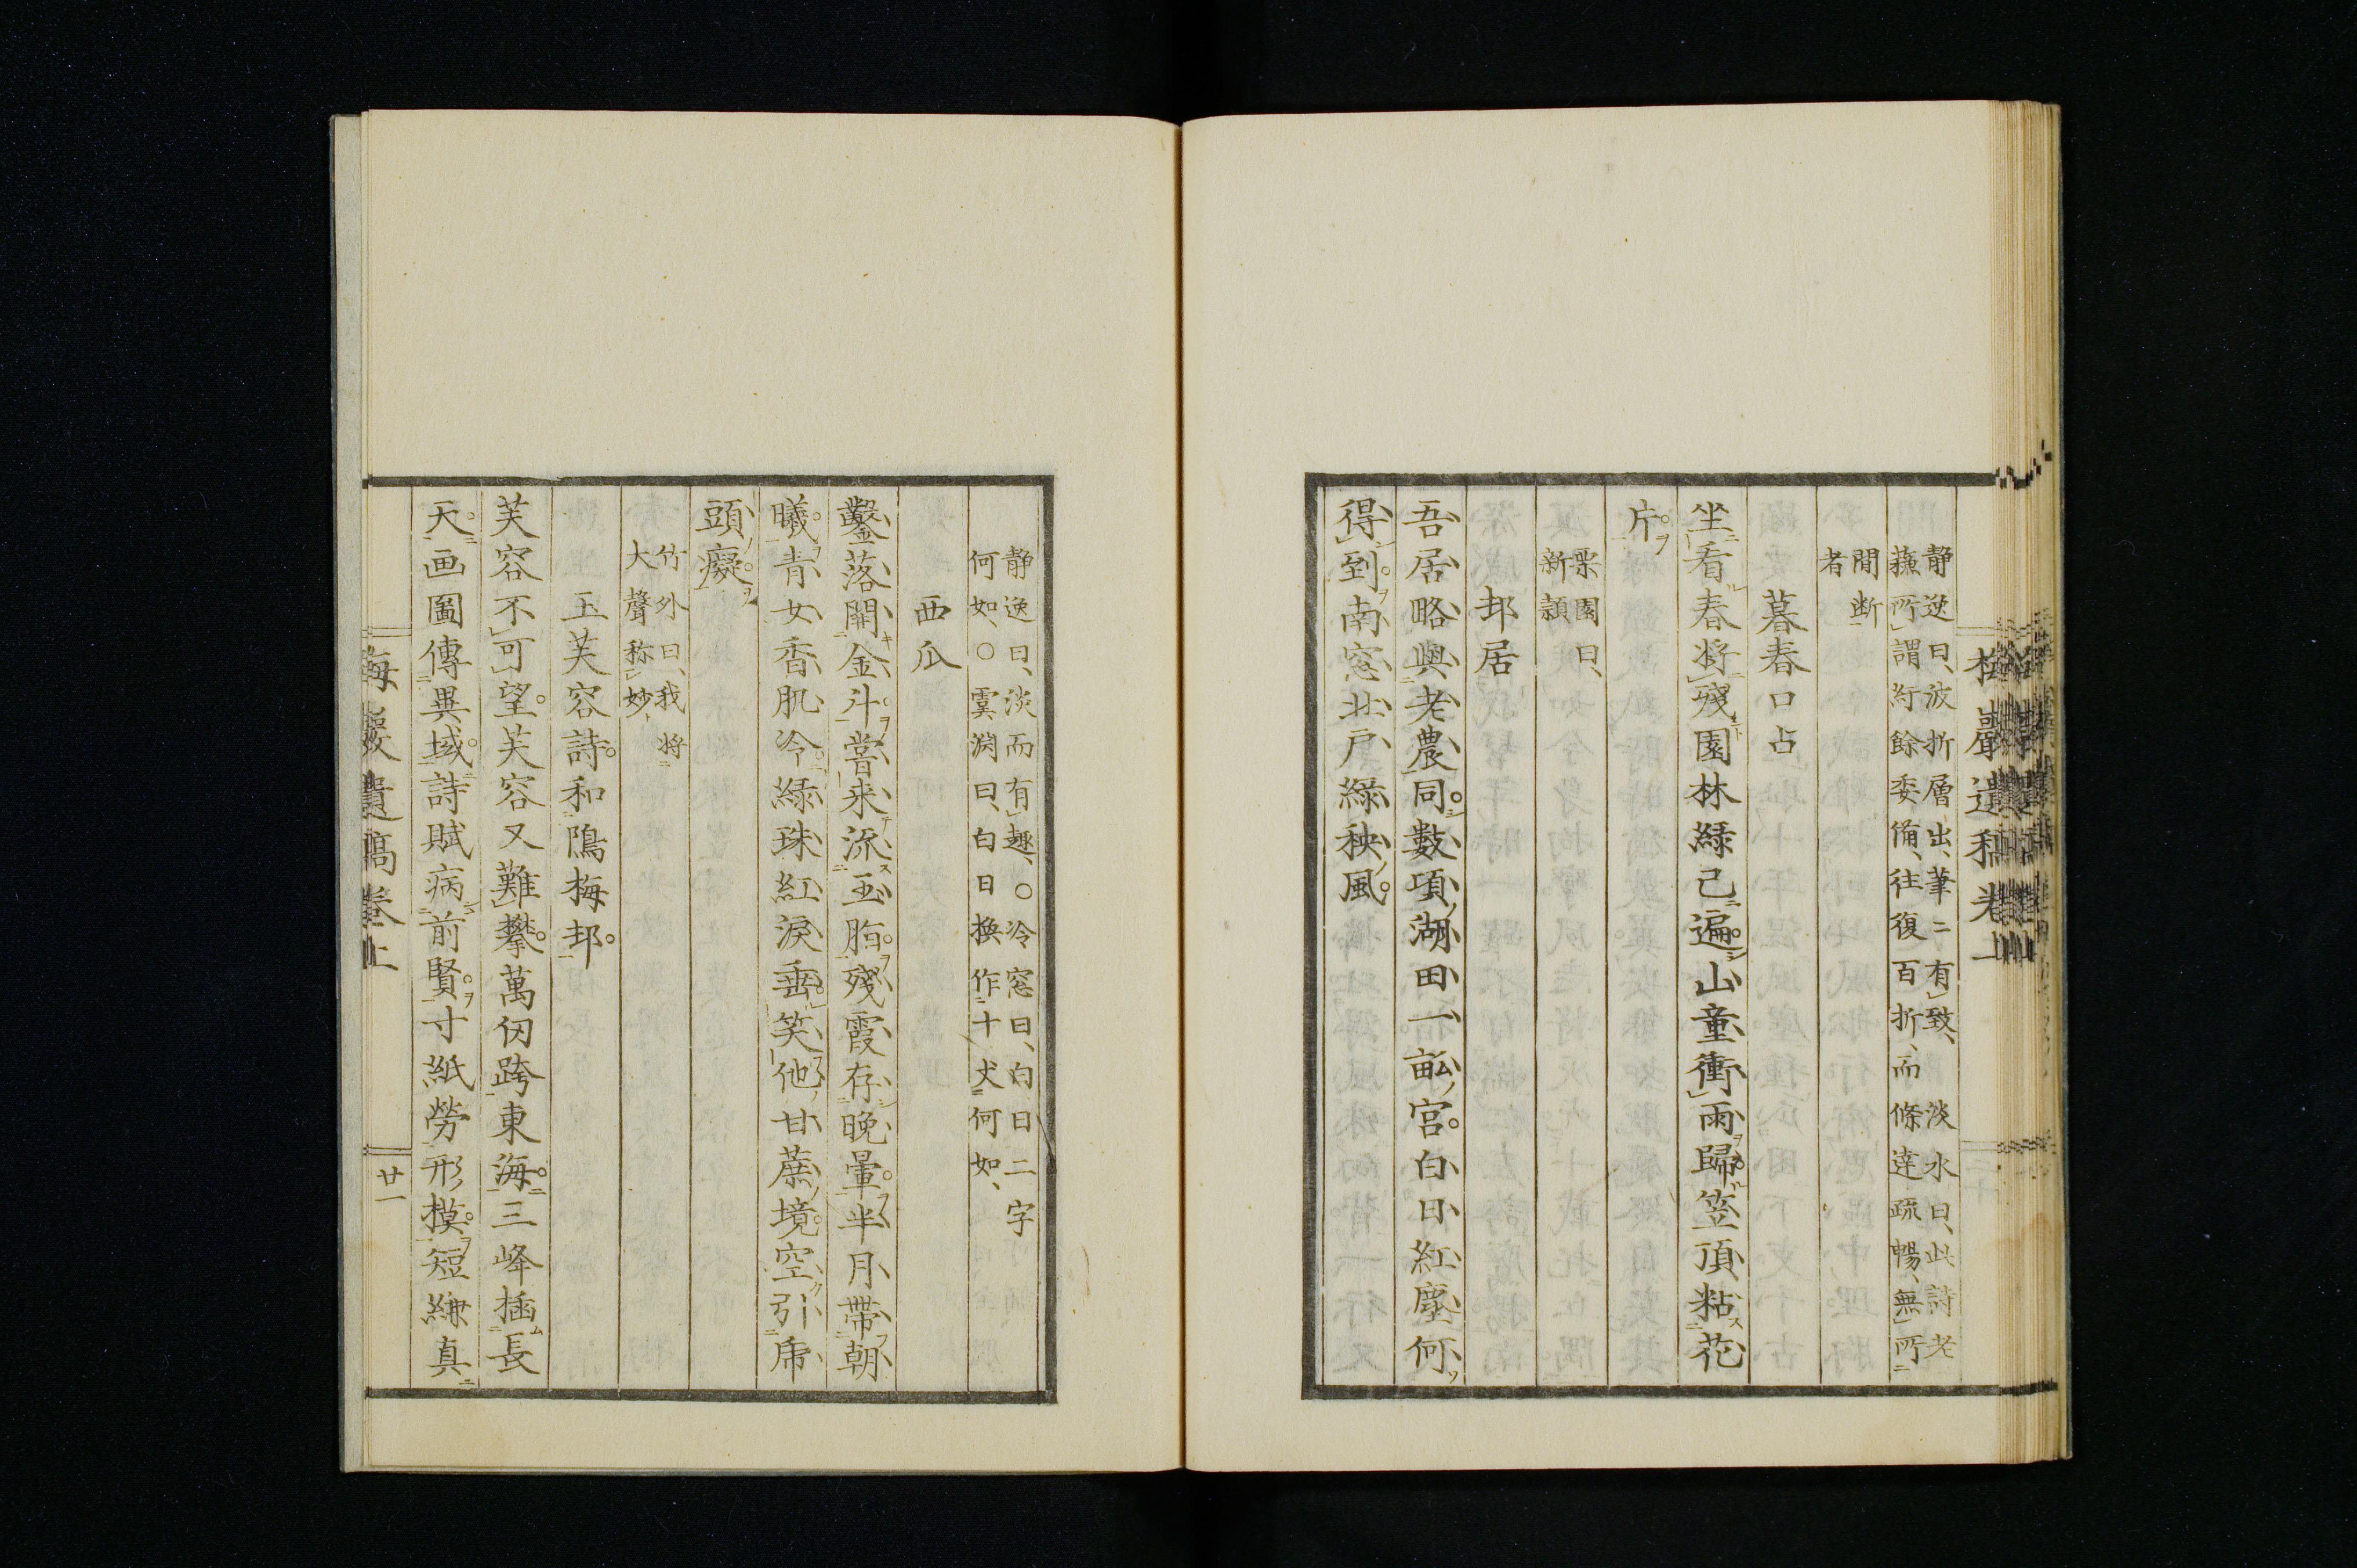 静逸曰、波折層出、筆二有致、 淡水曰、此詩老
蘓所謂紆餘委備、往復百折、而條達疏暢、無所
間断
者
暮春口占
坐看春将残園林緑已遍山童衝雨歸笠頂粘花
片
栗園曰、
新頴
邨居
吾居略與老農同數頃湖田一畆宮白日紅塵何
得到南窓北戸緑秧風
静逸曰、淡而有趣、○冷窓曰、白日二字
何如、○雲渕曰、白日換作十丈何如、
西瓜
鑿落開金斗嘗来流玉脂殘霞存晩暈半月帶朝
曦青女香肌冷緑珠紅淚垂笑他甘蔗境空引虎
頭癡
竹外曰、我将
大聲称妙
玉芙容詩和鳴梅邨
芙容不可望芙容又難攀萬仞跨東海三峰插長
天画圖傳異域詩賦病前賢寸紙勞形模短縑真
遺稿卷上
廿一